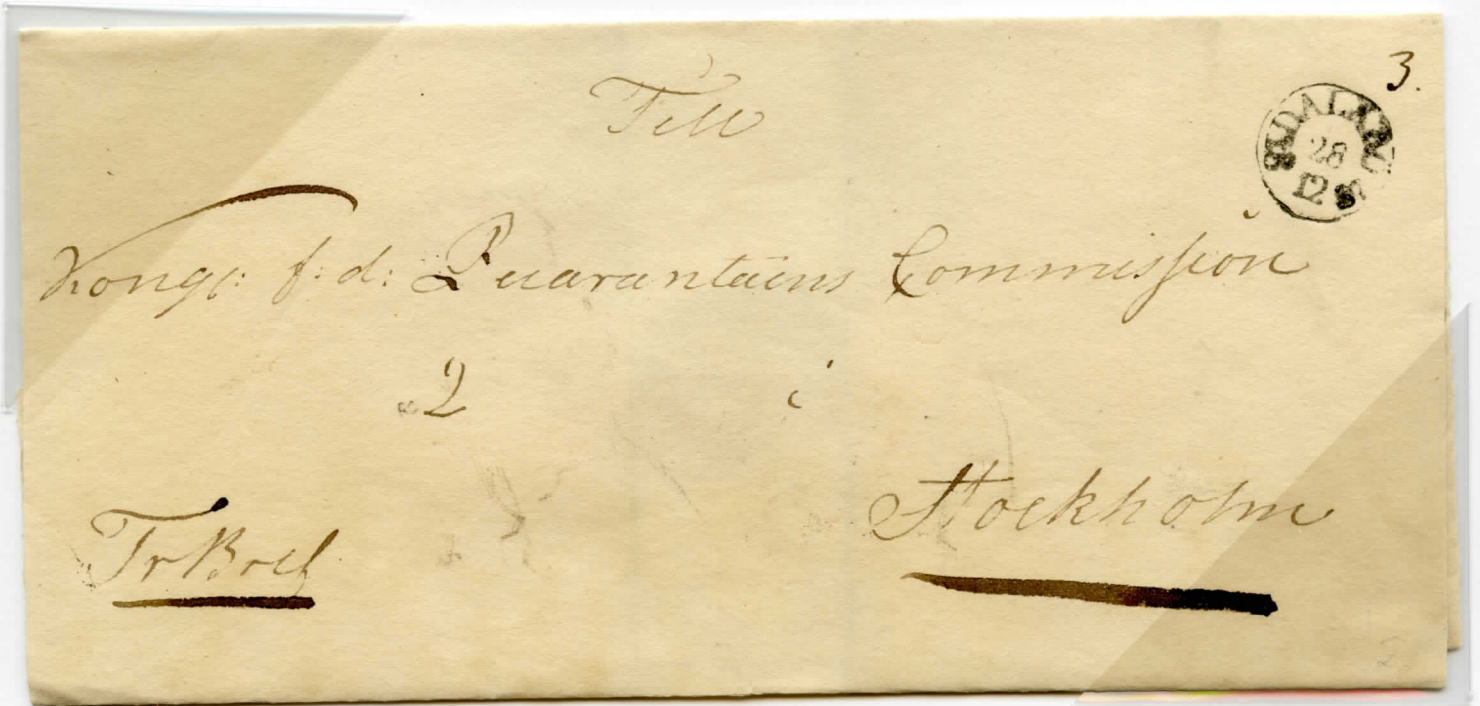 3.
DALARÖ
28
12
Till
Kongl: f: d: Quarantains Commission
2 i
Stockholm
Tr Bref
2